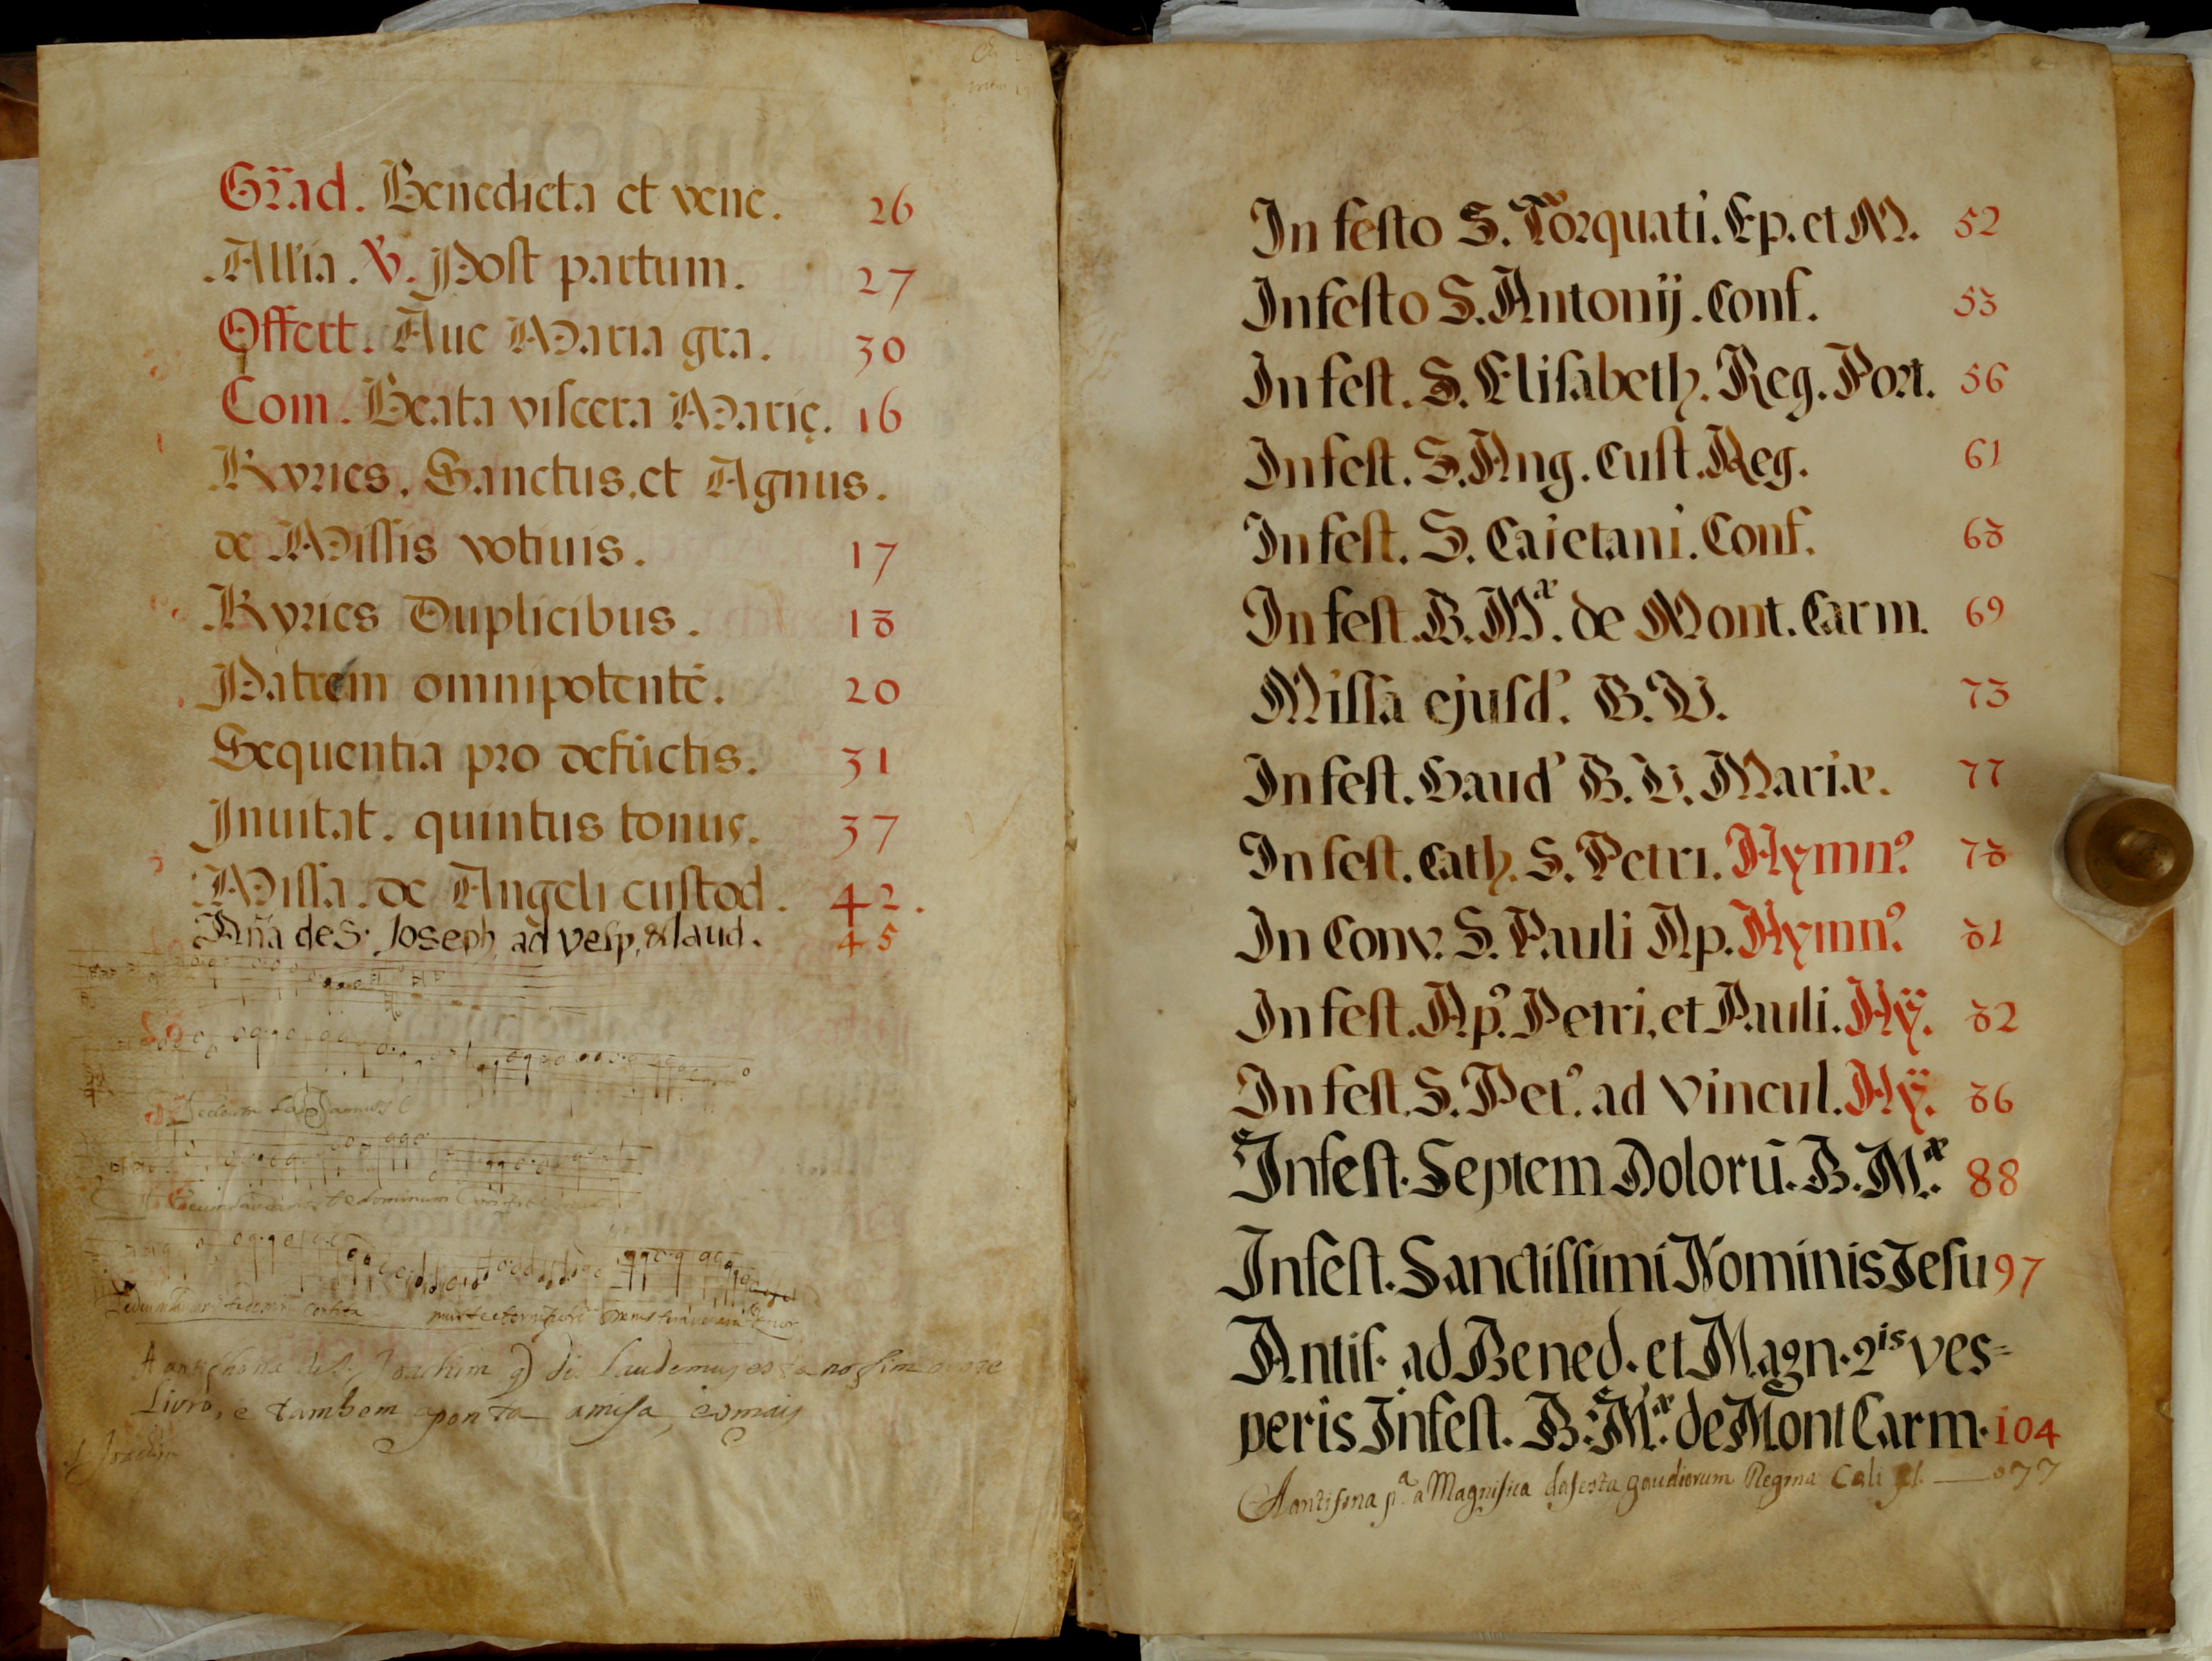 Gr̃ad. Benedicta et vene. 26
Allia. V. Post partum. 27
Offert. Aue Maria gra. 30
Com. Beata viscera Marię. 16
Kyries, Sanctus, et Agnus.
de Missis votiuis. 17
Kyries Duplicibus. 18
Patrem omnipotentẽ. 20
Sequentia pro defũctis. 31
Inuitat. quintus tonus. 37
Missa. de Angeli custod. 42.
Añã de S. Joseph, ad Vesp, & laud. 45
A antiphona de S. Joachim q̃ di Laudemus esta no fim
Livro, e tambem aponta a misa, e o mais
S. Joachim
In festo S. Torquati. Ep. et M. 52
In festo S. Antonij. Conf. 53
In fest. S. Elisabeth. Reg. Port. 56
In fest. S. Ang. Cust. Reg. 61
In fest. S. Caietani. Conf. 68
In fest. B. Mᵃ. de Mont. Carm. 69
Missa ejusd.' B. V. 73
In fest. Gaud' B. V. Mariæ. 77
In fest. Cath. S. Petri. Hymn.⁹ 78
In Conv. S. Pauli Ap. Hymn.⁹ 81
In fest. Ap.⁹ Petri, et Pauli. Hÿ. 82
In fest. S. Pet.⁹ ad Vincul. Hÿ. 86
In fest. Septem Dolorũ. B. Mᵃ. 88
In fest. Sanctissimi Nominis Jesu 97
Antif. ad Bened. et Magn. 2ⁱˢ ves=
peris In fest. B. Mᵃ. de Mont Carm. 104
A antifona pᵃ. a Magnifica da festa gaudiorum Regina Cali fl. — 077